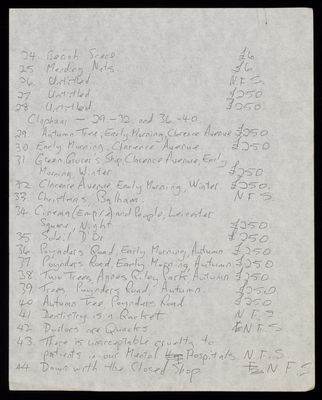 24. Beach Scene £6
25 Mending Nets £6
26 Untitled N.F.S.
27 Untitled £250
28 Untitled £250
Clapham — 29-32 and 36-40
29. Autumn Tree, Early Morning, Clarence Avenue £250
30. Early Morning, Clarence Avenue £250
31 Green Grocer's Shop, Clarence Avenue, Early
Morning, Winter £250
32 Clarence Avenue Early Morning, Winter. £250.
33 Christmas, Balham N F S
34 Cinema (Empire) and People, Leicester
Square, Night £250.
35 Soleil D'Or £250.
36 Poynders Road, Early Morning, Autumn £250
37 Poynders Road, Early Morning, Autumn £250
38 Two Trees, Agnes Riley Park, Autumn £250
39 Trees, Poynders Road, Autumn. £250
40 Autumn Tree Poynders Road £250
41 Dentistry is a Racket N F S
42 Doctors are Quacks N F S.
43. There is unacceptable cruelty to
patients in our Mental Hospitals N.F.S
44 Down with the Closed Shop N.F.S